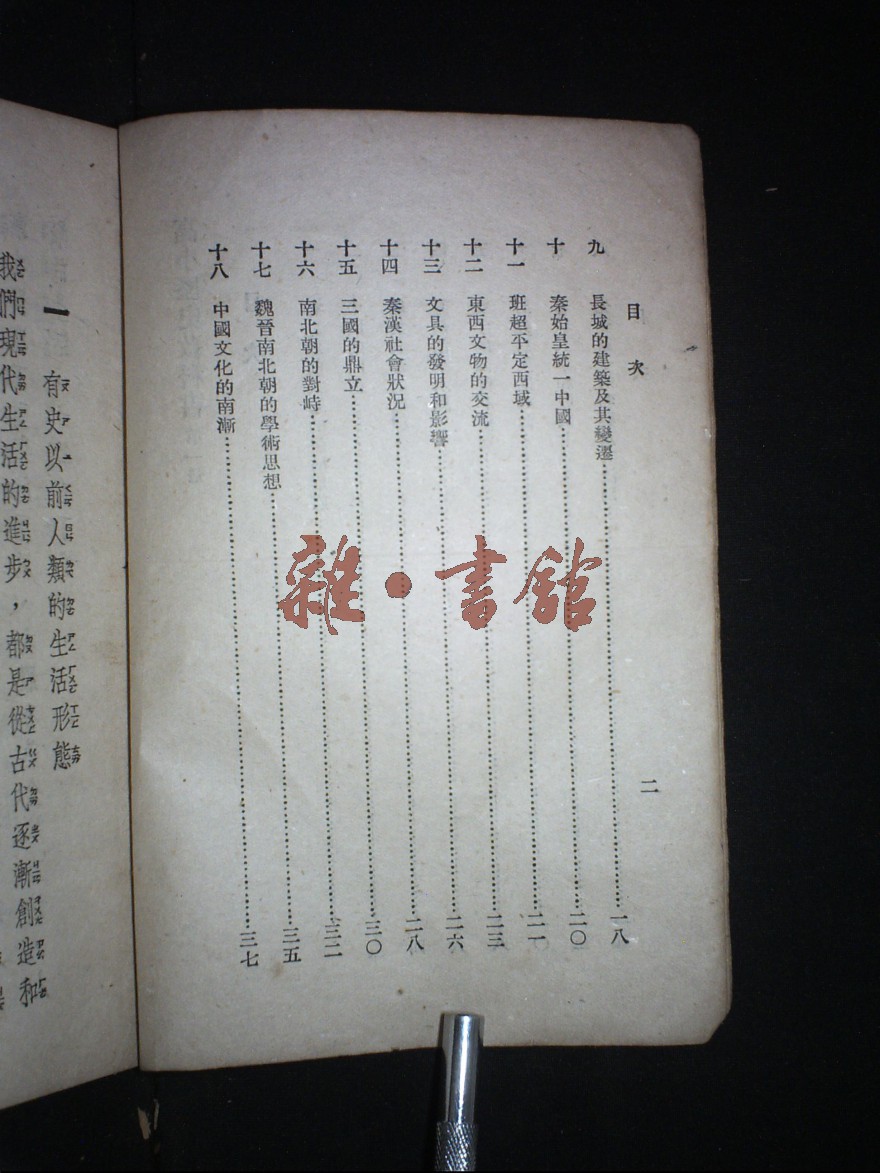 目次
二
九 長城的建築及其變遷 一八
十 秦始皇統一中國 二〇
十一 班超平定西域 二一
十二 東西文物的交流 二三
十三 文具的發明和影響 二六
十四 秦漢社會狀況 二八
十五 三國的鼎立 三〇
十六 南北朝的對峙 三二
十七 魏晉南北朝的學術思想 三五
十八 中國文化的南漸 三七
一 有史以前人類的生活形態
我們現代生活的進步，都是從古代逐漸創造和
雜·書館